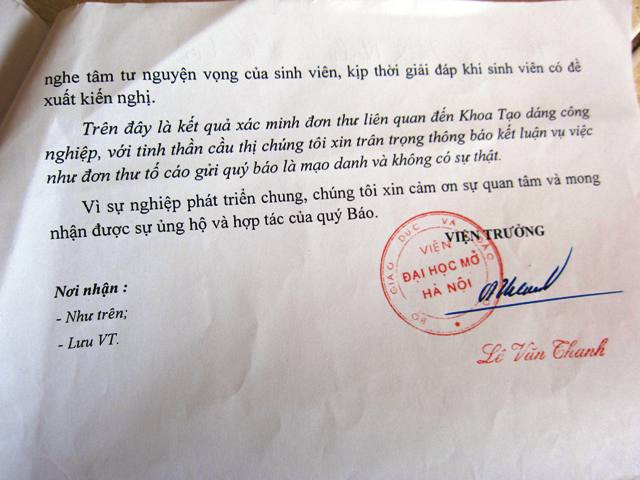 nghe tâm tư nguyện vọng của sinh viên, kịp thời giải đáp khi sinh viên có đề
xuất kiến nghị.
Trên đây là kết quả xác minh đơn thư liên quan đến Khoa Tạo dáng công
nghiệp, với tinh thần cầu thị chúng tôi xin trân trọng thông báo kết luận vụ việc
như đơn thư tố cáo gửi quý báo là mạo danh và không có sự thật.
Vì sự nghiệp phát triển chung, chúng tôi xin cảm ơn sự quan tâm và mong
nhận được sự ủng hộ và hợp tác của quý Báo.
VIỆN TRƯỞNG
BỘ GIÁO DỤC VÀ ĐÀO
VIỆN
ĐẠI HỌC MỞ
HÀ NỘI
Nơi nhận :
- Như trên;
- Lưu VT.
Lê Văn Thanh